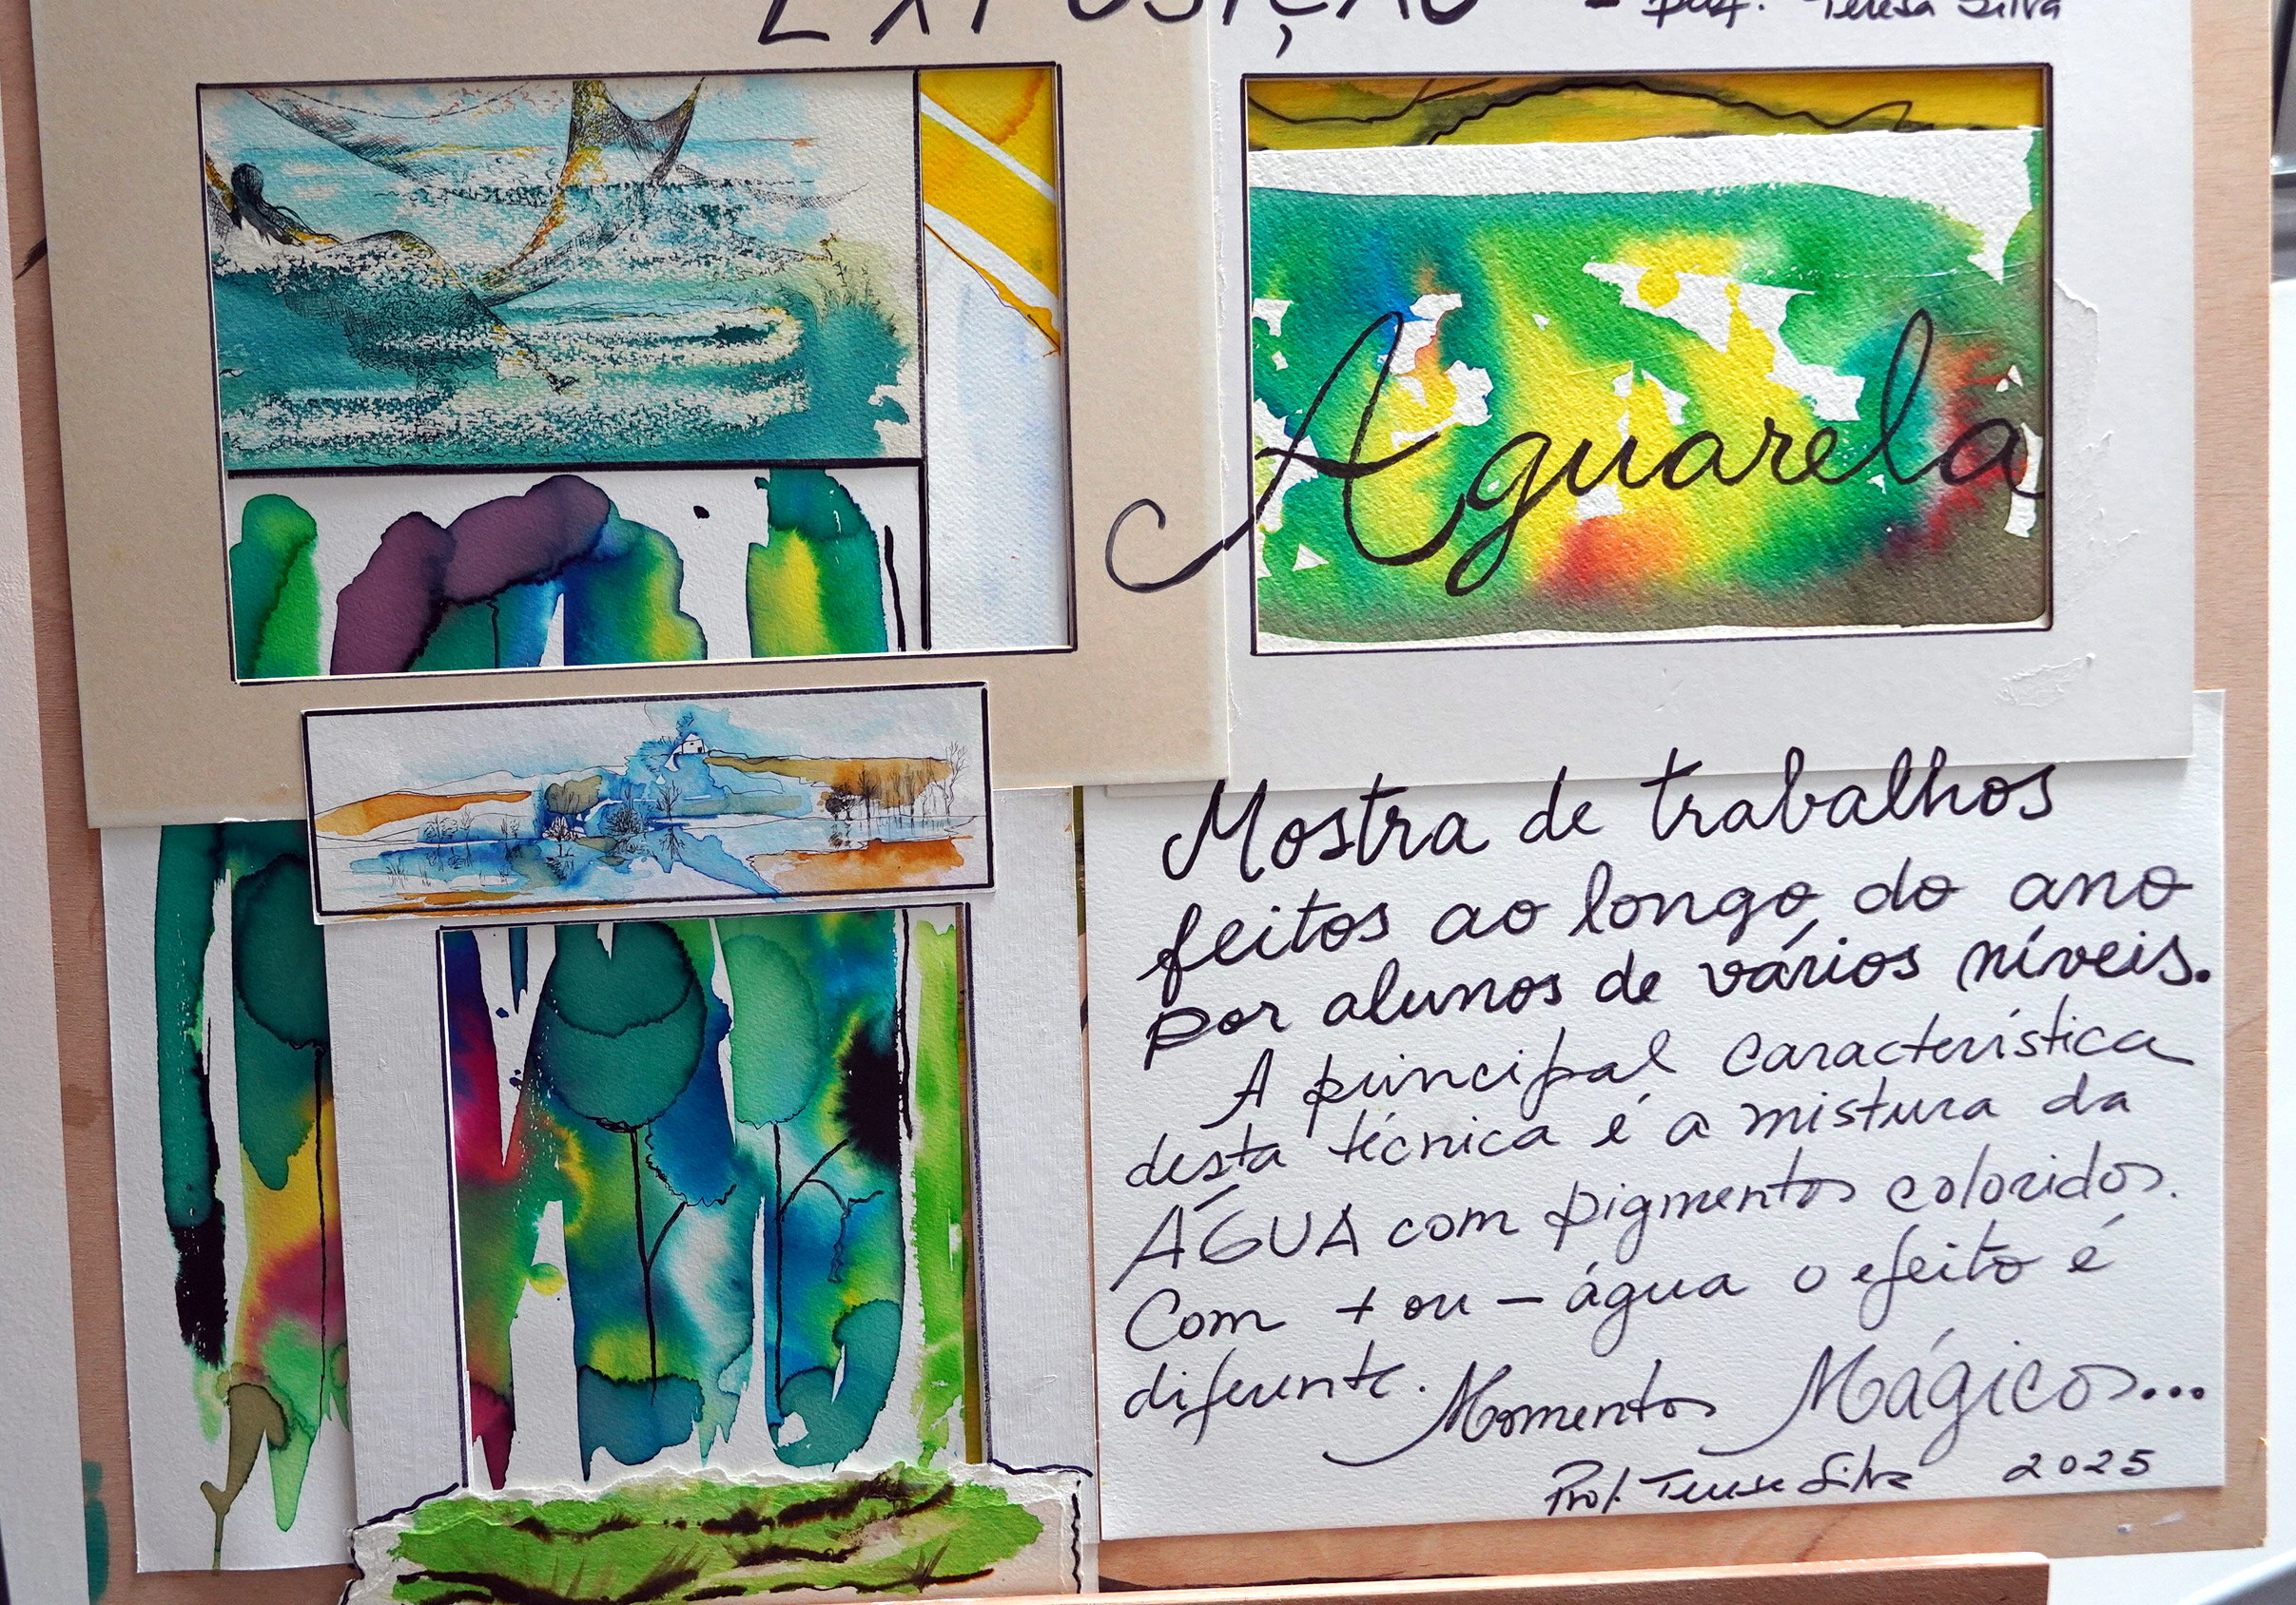 EXPOSIÇÃO - prof. Teresa Silva
Aguarela
Mostra de trabalhos
feitos ao longo do ano
por alunos de vários níveis.
A principal característica
desta técnica é a mistura da
ÁGUA com pigmentos coloridos.
Com + ou - água o efeito é
diferente. Momentos Mágicos...
Prof. Teresa Silva 2025